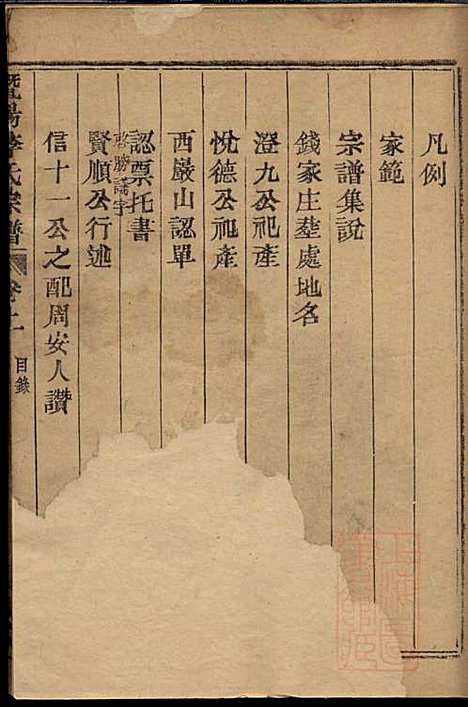 凡例
家範
宗譜集說
錢家庄塟處地名
澄九公祀產
悅德公祀產
西巖山認單
認票托書
賢順公行述
信十一公之配周安人讚
氏宗譜
目錄